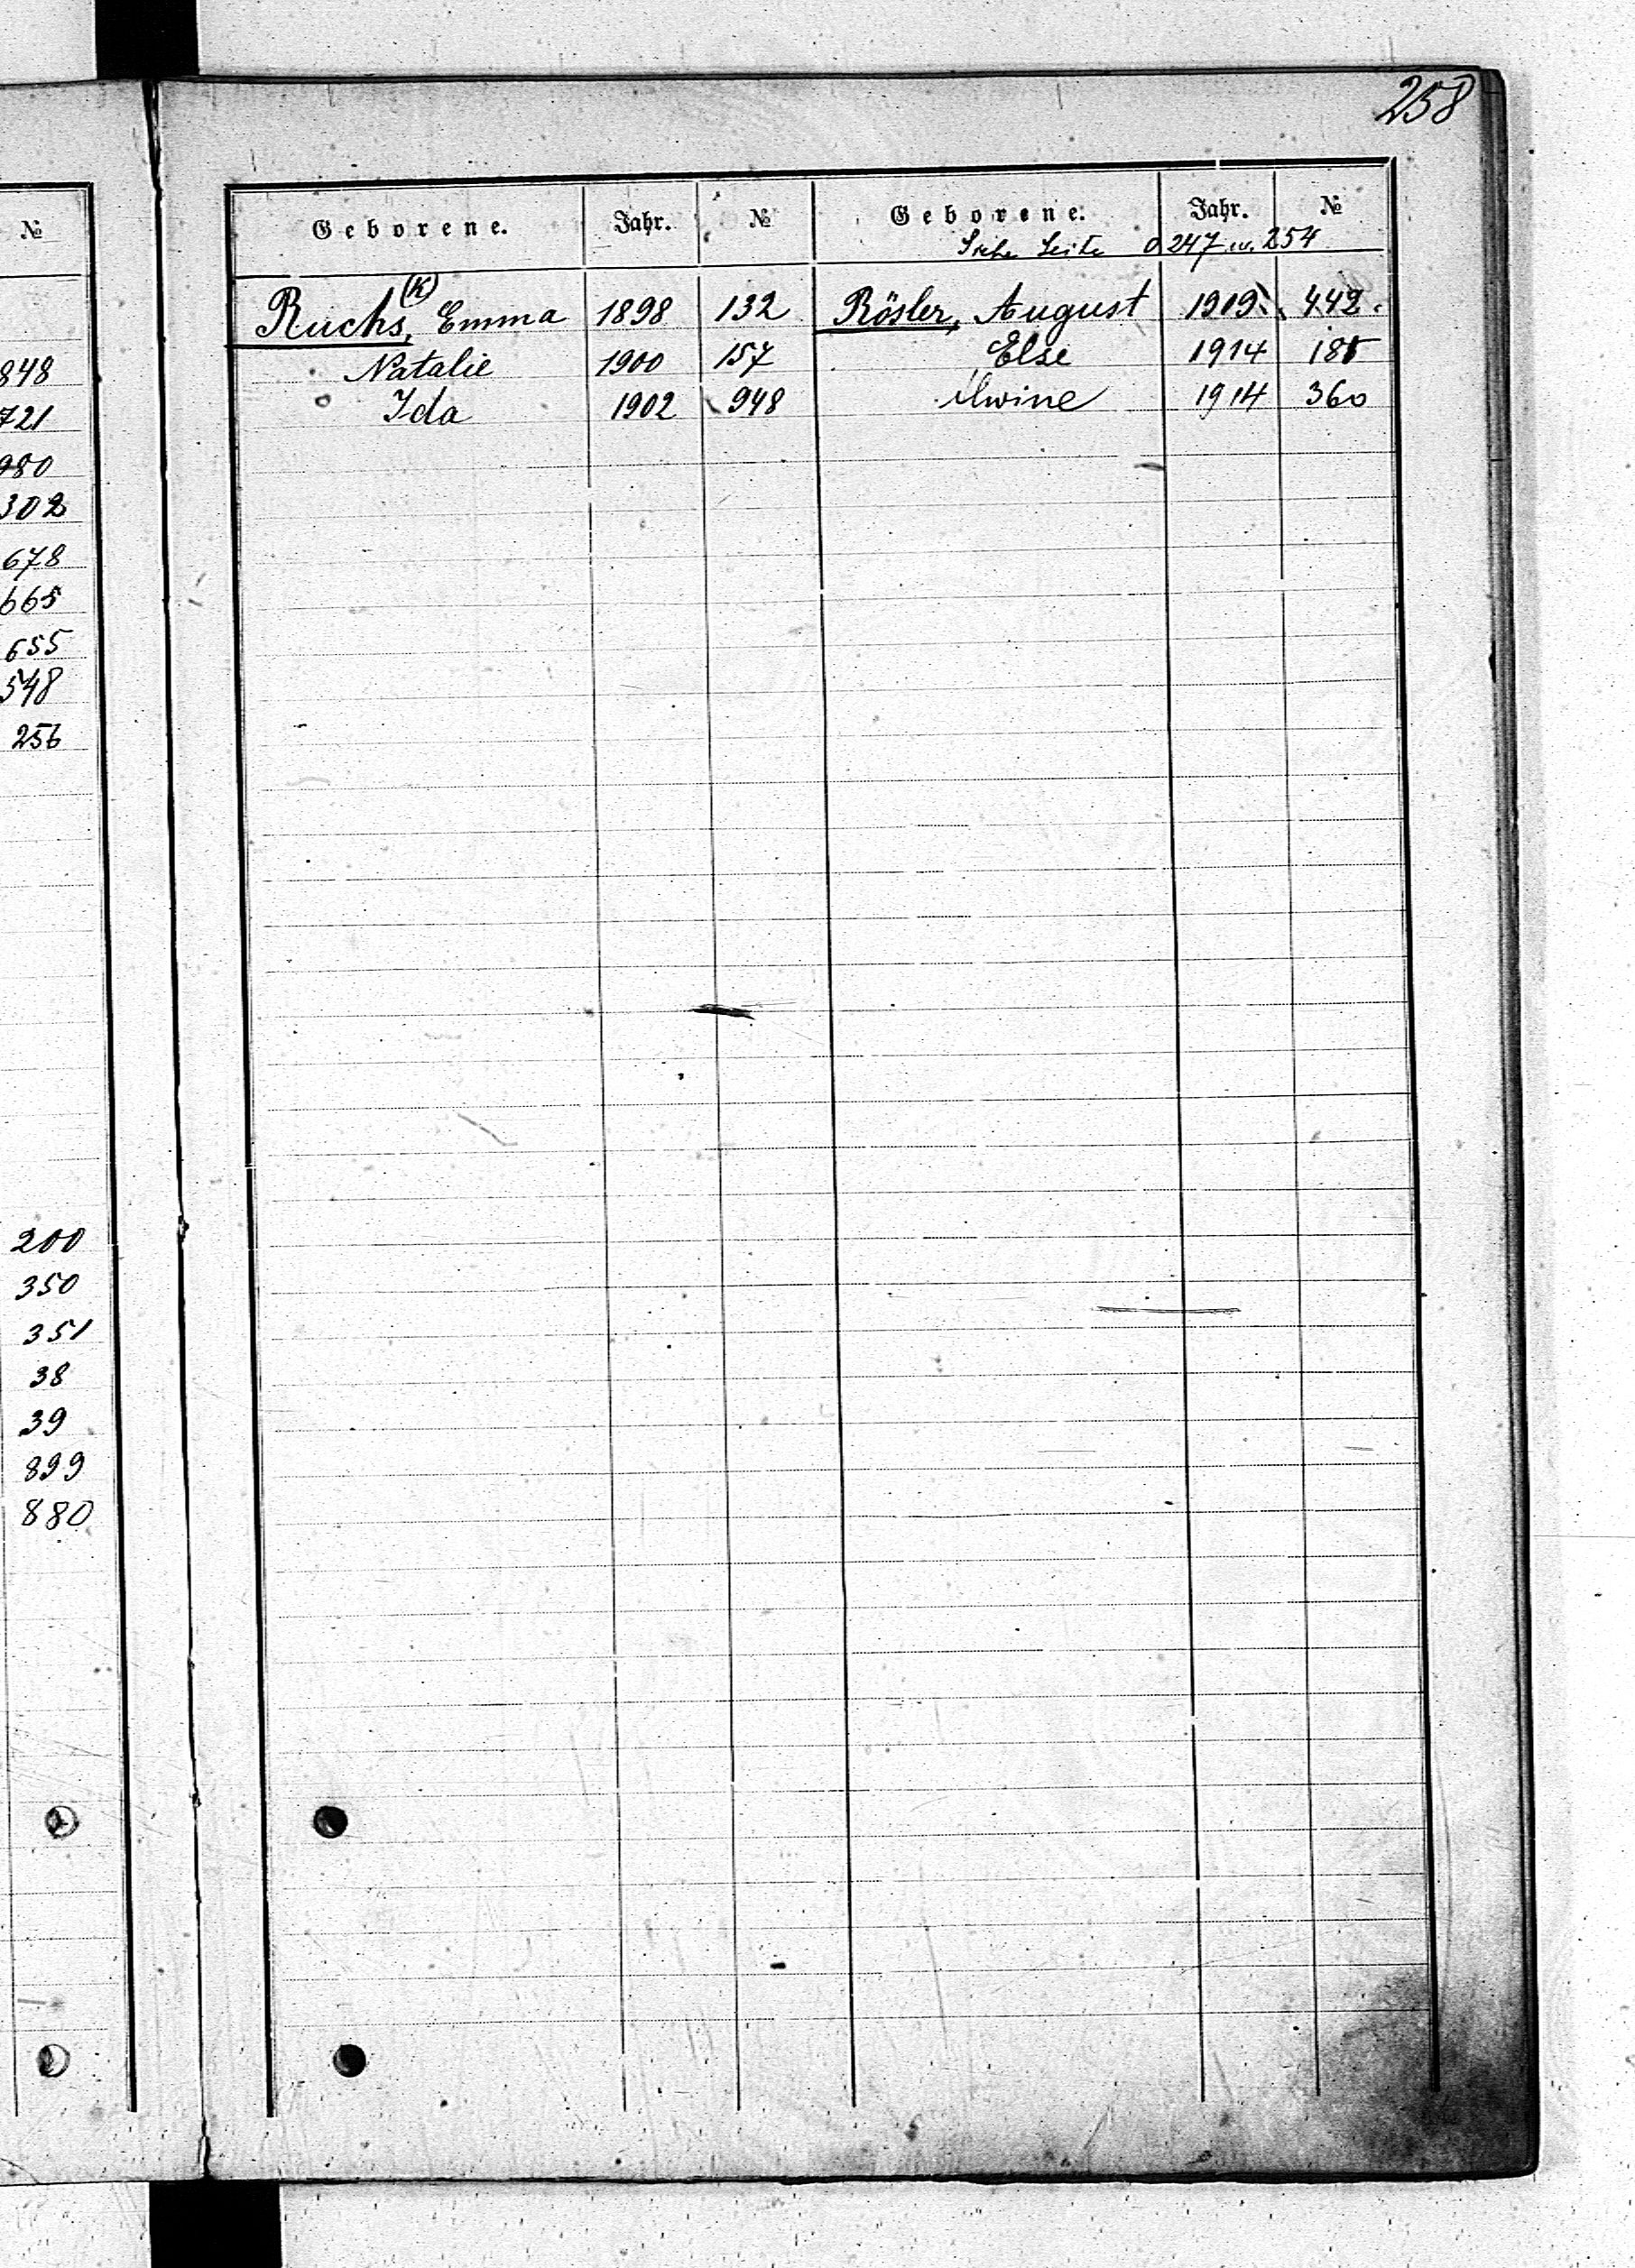 258
№
848
721
980
302
678
665
655
548
256
200
350
351
38
39
899
880
Geborene. Jahr. № Geborene. Jahr. №
Siehe Seite 247 u. 254
(K)
Ruchs, Emma 1898 132 Rösler, August 1909 442.
Natalie 1900 157 Else 1914 185
Ida 1902 948 Alwine 1914 360